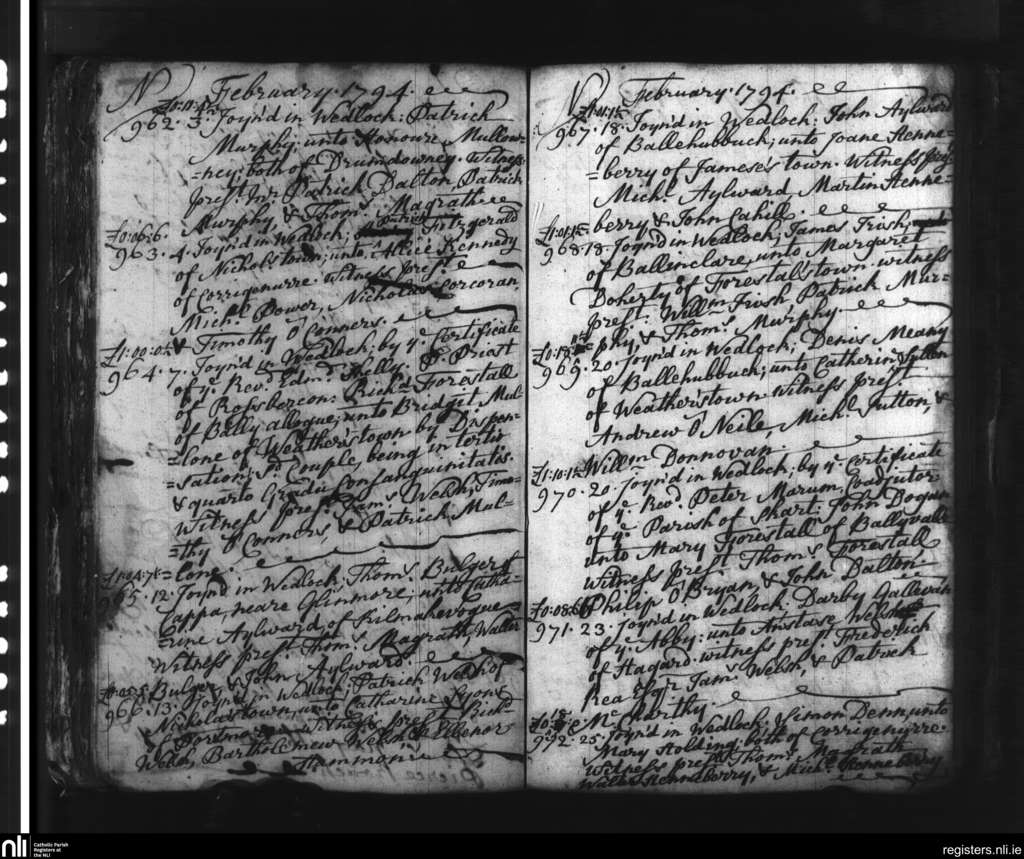 N February 1794.
£0:11:4½
962. 3. Joyn'd in Wedlock: Patrick
Murphy: unto Honoure Mullow=
=ney: both of Drumdowney. Witness
Pres.t Jn.o Patrick Dalton, Patrick
Murphy, & Thom.s Magrath.
£0:06:6
963. 4. Joyn'd in Wedlock; Patrick Fitzgerald
of Nicholstown; unto Alice Kennedy
of Corrigenurre. Witness Pres.t
Mich.l Power, Nicholas Corcoran,
& Timothy O'Conners.
£1:00:0
964. 7. Joyn'd in Wedlock; by y.e Certificate
of y.e Rev.d Edm.d Kelly: P. Priest
of Rossbercon: Rich.d Forestall
of Bally alloque; unto Bridgit Mul=
=lone of Weatherstown by Dispen=
=sation; s.d Couple, being in tertio
& quarto Gradu Consanguinitatis.
Witness pres.t Jam.s Welsh, Timo=
=thy O'Conners, & Patrick Mul=
=lone.
£1:04:7
965. 12. Joynd in Wedlock Thom.s Bulger of
Cappa, neare Glinmore; unto Catha=
=rine Aylward, of Kilmakevogue
Witness pres.t Thom.s Magrath, Walter
Bulger, & John Aylward.
£0:05:5
966. 13. Joyn'd in Wedlock; Patrick Welsh of
Nickolastown; unto Catharine Lyons
Witness pres.t Rich.d
Welsh, Bartholemew Welsh & Ellenor
Hammon
N February 1794.
£1:01:1½
967. 18. Joyn'd in Wedlock: John Aylward
of Ballehubbuck; unto Joane Kenne=
=berry of Jameses town. Witness pres.t
Mich.l Aylward, Martin Kenne=
berry & John Cahill.
968. 18. Joynd in Wedlock; James Irish,
of Ballinclare, unto Margaret
Doherty of Forestallstown. witness
pres.t. Will.m Irish Patrick Mur=
phy, & Thom.s Murphy.
969. 20. Joyn'd in Wedlock; Denis Meany
of Ballehubbuck; unto Catherin Sutton
of Weatherstown. Witness pres.t
Andrew O'Neile, Mich.l Sutton, &
Will.m Donnovan
970. 20. Joyn'd in Wedlock; by y.e Certificate
of y.e Rev.d Peter Marum, Coadjutor
of y.e Parish of Shart: John Bogan
unto Mary Forestall of Ballyvalle
witness pres.t Thom.s Forestall
Philip O'Bryan & John Dalton.
£0:08:
971. 23. Joyn'd in Wedlock: Darby Gallevan
of y.e Abby: unto Anstase Welsh
of Hagard. witness pres.t Frederick
Rea Esq.r Jam.s Welsh, & Patrick
Mc.Carthy.
972. 25. Joyn'd in Wedlock: Simon Denn, unto
Mary Holding: both of Corrigenurre.
Witness pres.t Thom.s Magrath
Walter Kenneberry, & Mich.l Kenneberry
nli
Catholic Parish
Registers at
the NLI
registers.nli.ie